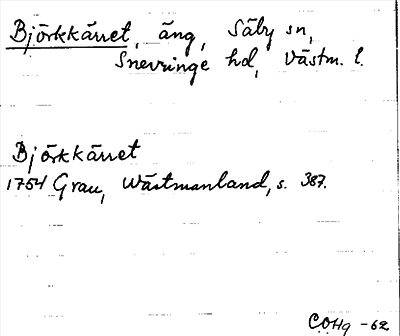 Björkkärret, äng, Säby sn,
Snevringe hd, Västm. l.
Björkkärret
1754 Grau, Wästmanland, s. 387.
COHg -62